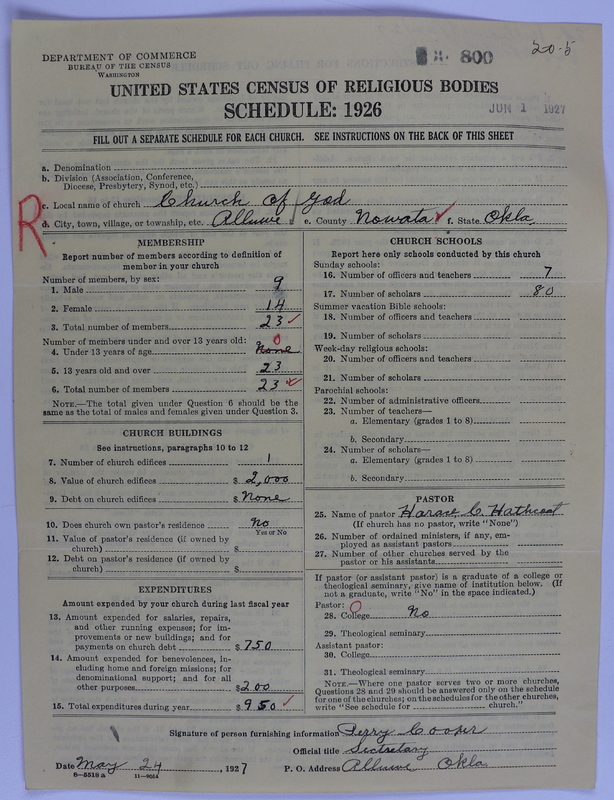 DEPARTMENT OF COMMERCE
BUREAU OF THE CENSUS
WASHINGTON
800
20-5
UNITED STATES CENSUS OF RELIGIOUS BODIES
SCHEDULE: 1926
JUN 1 1927
FILL OUT A SEPARATE SCHEDULE FOR EACH CHURCH. SEE INSTRUCTIONS ON THE BACK OF THIS SHEET
a. Denomination
b. Division (Association, Conference,
Diocese, Presbytery, Synod, etc.)
c. Local name of church Church of God
R
d. City, town, village, or township, etc. Alluwe e. County Nowata f. State Okla.
MEMBERSHIP
Report number of members according to definition of
member in your church
Number of members, by sex:
1. Male 9
2. Female 14
3. Total number of members 23
Number of members under and over 13 years old: 0
4. Under 13 years of age None
5. 13 years old and over 23
6. Total number of members 23
NOTE.—The total given under Question 6 should be the
same as the total of males and females given under Question 3.
CHURCH BUILDINGS
See instructions, paragraphs 10 to 12
7. Number of church edifices 1
8. Value of church edifices $ 2,000
9. Debt on church edifices $ None
10. Does church own pastor's residence No
Yes or No
11. Value of pastor's residence (if owned by
church) $
12. Debt on pastor's residence (if owned by
church) $
EXPENDITURES
Amount expended by your church during last fiscal year
13. Amount expended for salaries, repairs,
and other running expenses; for im-
provements or new buildings; and for
payments on church debt $ 750
14. Amount expended for benevolences, in-
cluding home and foreign missions; for
denominational support; and for all
other purposes $ 200
15. Total expenditures during year $ 950
CHURCH SCHOOLS
Report here only schools conducted by this church
Sunday schools:
16. Number of officers and teachers 7
17. Number of scholars 80
Summer vacation Bible schools:
18. Number of officers and teachers
19. Number of scholars
Week-day religious schools:
20. Number of officers and teachers
21. Number of scholars
Parochial schools:
22. Number of administrative officers
23. Number of teachers—
a. Elementary (grades 1 to 8)
b. Secondary
24. Number of scholars—
a. Elementary (grades 1 to 8)
b. Secondary
PASTOR
25. Name of pastor Horace C. Hathcoat
(If church has no pastor, write "None")
26. Number of ordained ministers, if any, em-
ployed as assistant pastors
27. Number of other churches served by the
pastor or his assistants
If pastor (or assistant pastor) is a graduate of a college or
theological seminary, give name of institution below. (If
not a graduate, write "No" in the space indicated.)
Pastor: 0
28. College No
29. Theological seminary
Assistant pastor:
30. College
31. Theological seminary
NOTE.—Where one pastor serves two or more churches,
Questions 28 and 29 should be answered only on the schedule
for one of the churches; on the schedules for the other churches,
write "See schedule for church."
Signature of person furnishing information Perry Cooper
Official title Sectretary
Date May 24, 1927 P. O. Address Alluwe Okla
6—5518 a 11—9064